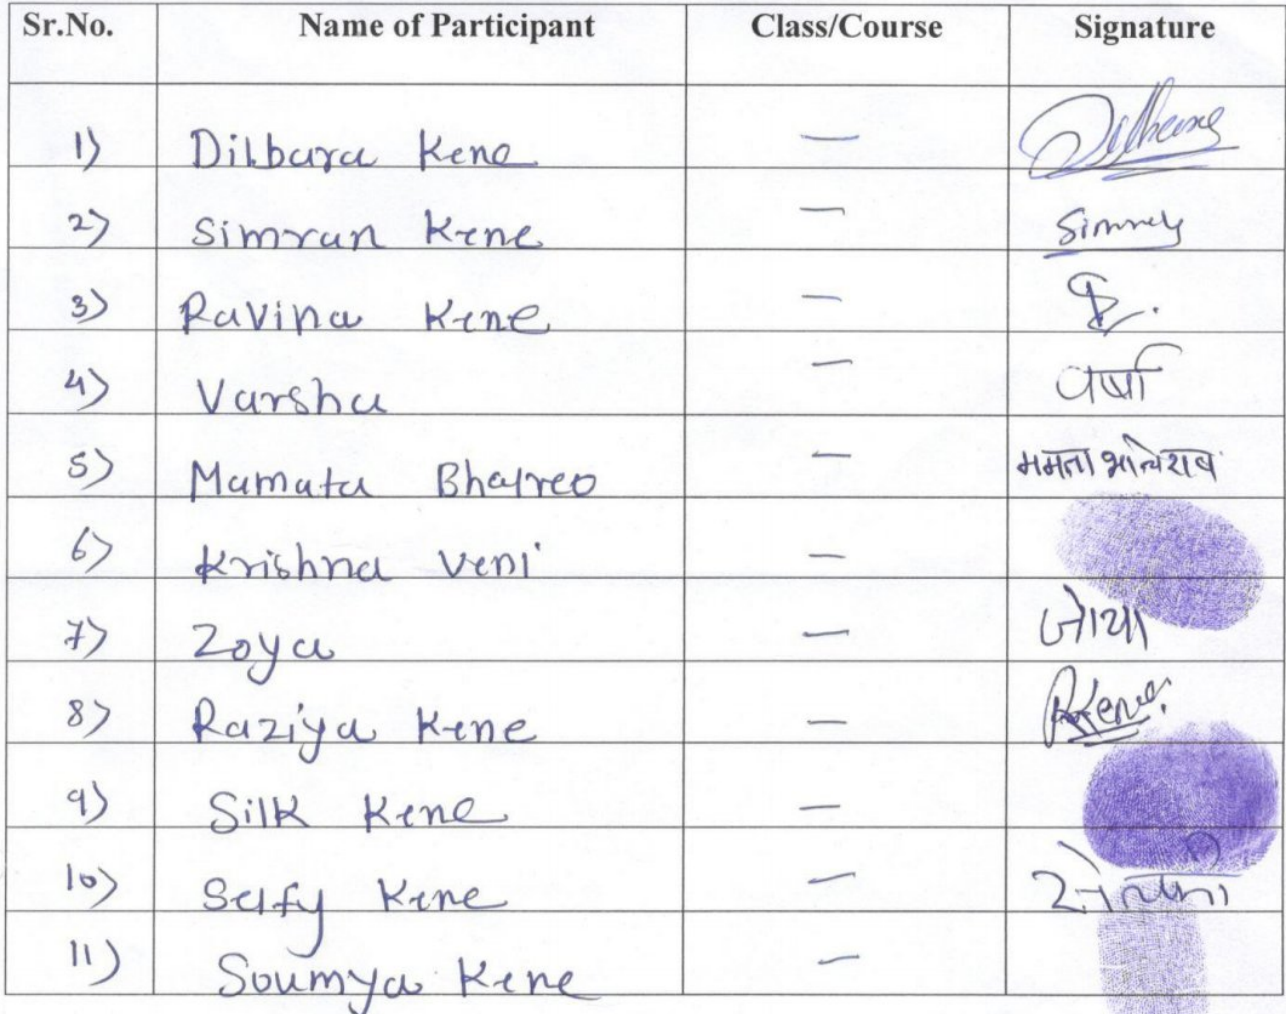 Sr.No. Name of Participant Class/Course Signature
1) Dilbara Kene —
2) Simran Kene — Simran
3) Ravina Kene —
4) Varsha — वर्षा
5) Mamata Bhalreo — ममता
6) Krishna Veni —
7) Zoya — जोया
8) Raziya Kene — RKene
9) Silk Kene —
10) Selfy Kene —
11) Soumya Kene —